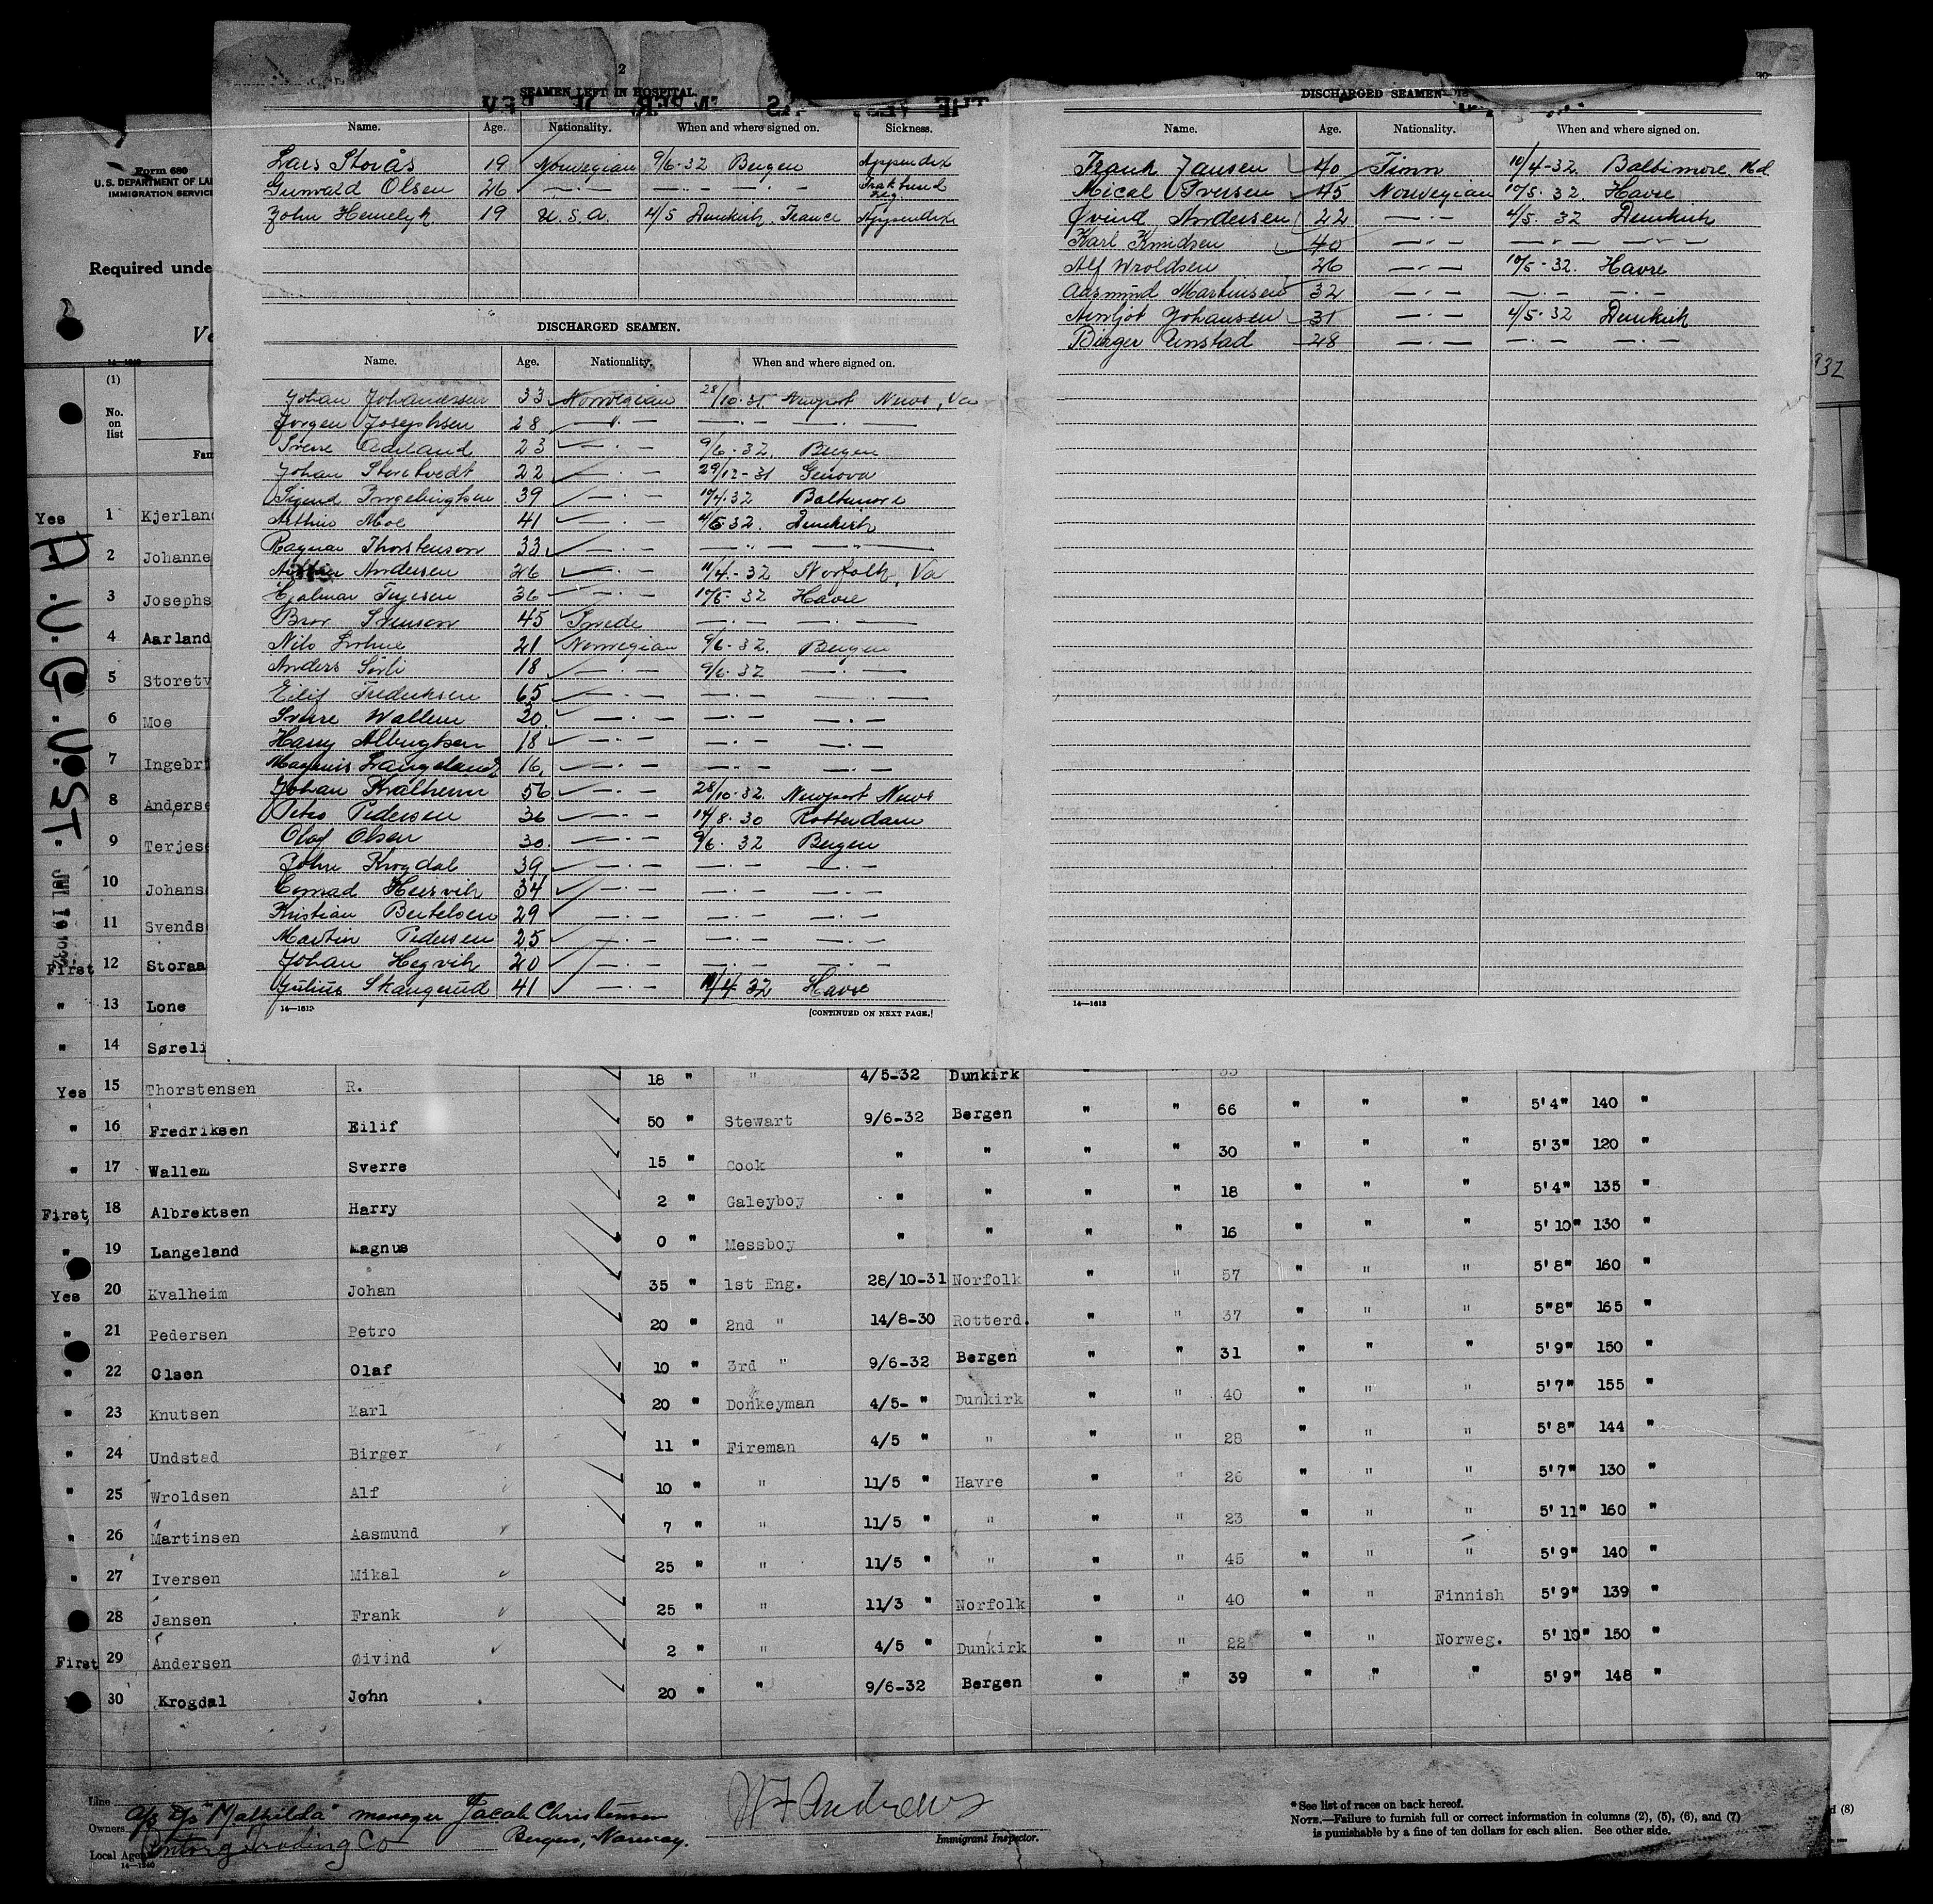 2
SEAMEN LEFT IN HOSPITAL.
Name. Age. Nationality. When and where signed on. Sickness.
Lars Storås 19 Norwegian 9/6-32 Bergen Appendix
Gunvald Olsen 26 — · — — · — — · —
John Hemelyk 19 U.S.A. 4/5 Dunkirk, France Appendix
DISCHARGED SEAMEN.
Name. Age. Nationality. When and where signed on.
Johan Johannessen 33 Norwegian 28/10-31 Newport News, Va
Jørgen Josephsen 28 — · — — · — — · —
Sverre Aarland 23 — · — 9/6-32. Bergen
Johan Storetvedt 22 — · — 29/12-31 Genova
Sigurd Ingebrigtsen 39 — · — 10/4 32 Baltimore
Arthur Moe 41 — · — 4/5 32. Dunkirk
Ragnar Thorstenson 33 — · — — · — — · —
Andersen 26 — · — 11/4-32 Norfolk, Va
Hjalmar Terjesen 36 — · — 10/5- 32 Havre
Bror Svenson 45 Swede — · — — · —
Nils Lohne 21 Norwegian 9/6-32. Bergen
Anders Sörli 18 — · — 9/6-32 — · —
Eilif Frederiksen 65 — · — — · — — · —
Sverre Wallem 30. — · — — · — — · —
Harry Albrigtsen 18 — · — — · — — · —
Magnus Langeland 16. — · — — · — — · —
Johan Kvalheim 56 — · — 28/10-32. Newport News
Petro Pedersen 36 — · — 14/8-30 Rotterdam
Olaf Olsen 30. — · — 9/6-32 Bergen
John Krogdal 39 — · — — · — — · —
Conrad Hersvik 34 — · — — · — — · —
Kristian Bertelsen 29 — · — — · — — · —
Martin Pedersen 25 — · — — · — — · —
Johan Hegvik 20 — · — — · — — · —
Julius Skangerud 41 — · — 11/4 32 Havre
14—1613
[CONTINUED ON NEXT PAGE.]
DISCHARGED SEAMEN
Name. Age. Nationality. When and where signed on.
Frank Jansen 40 Finn 10/4-32. Baltimore. Md
Mical Iversen 45 Norwegian 10/5. 32. Havre
Øvind Andersen 22 — · — 4/5. 32 Dunkirk
Karl Knudsen 40 — · — — · — — · —
Alf Wroldsen 26 — · — 10/5-32. Havre
Aasmund Martinsen 32 — · — — · — — · —
Arnljot Johansen 31 — · — 4/5-32 Dunkirk
Birger Unstad 28 — · — — · — — · —
14—1613
Form 680
U.S. DEPARTMENT OF LA
IMMIGRATION SERVICE
Required unde
Ve
14—1240
932
(1)
No. on list
Fam
A.U.G.U.S.T.
JUL 19 1932
Yes 1 Kjerland
2 Johanne
3 Josephs
4 Aarland
5 Storetv
6 Moe
7 Ingebri
8 Anderse
9 Terjese
10 Johans
11 Svends
First 12 Storaa
" 13 Lone
" 14 Søreli
Yes 15 Thorstensen R. 18 " " 4/5-32 Dunkirk " " 33
" 16 Fredriksen Eilif 50 " Stewart 9/6-32 Bergen " " 66 " " " 5'4" 140 "
" 17 Wallem Sverre 15 " Cook " " " " 30 " " " 5'3" 120 "
First 18 Albrektsen Harry 2 " Galeyboy " " " " 18 " " " 5'4" 135 "
" 19 Langeland Magnus 0 " Messboy " " " " 16 " " " 5'10" 130 "
Yes 20 Kvalheim Johan 35 " 1st Eng. 28/10-31 Norfolk " " 57 " " " 5'8" 160 "
" 21 Pedersen Petro 20 " 2nd " 14/8-30 Rotterd. " " 37 " " " 5"8" 165 "
" 22 Olsen Olaf 10 " 3rd " 9/6-32 Bergen " " 31 " " " 5'9" 150 "
" 23 Knutsen Karl 20 " Donkeyman 4/5- " Dunkirk " " 40 " " " 5'7" 155 "
" 24 Undstad Birger 11 " Fireman 4/5 " " " " 28 " " " 5'8" 144 "
" 25 Wroldsen Alf 10 " " 11/5 " Havre " " 26 " " " 5'7" 130 "
" 26 Martinsen Aasmund 7 " " 11/5 " " " " 23 " " " 5'11" 160 "
" 27 Iversen Mikal 25 " " 11/5 " " " " 45 " " " 5'9" 140 "
28 Jansen Frank 25 " " 11/3 " Norfolk " " 40 " " Finnish 5'9" 139 "
First 29 Andersen Øivind 2 " " 4/5 " Dunkirk " " 22 " " Norweg. 5'10" 150 "
30 Krogdal John 20 " " 9/6-32 Bergen " " 39 " " " 5'9" 148 "
Line
Owners A/S D/S "Mathilda" manager Jacob Christensen
Bergen, Norway.
Local Agen Trading Co
14—1240
W F Andrews
Immigrant Inspector.
* See list of races on back hereof.
NOTE.—Failure to furnish full or correct information in columns (2), (5), (6), and (7)
is punishable by a fine of ten dollars for each alien. See other side.
d (8)